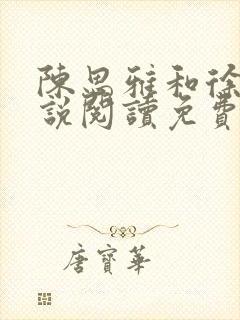 陳思雅和徐
說閱讀免費
唐寶華